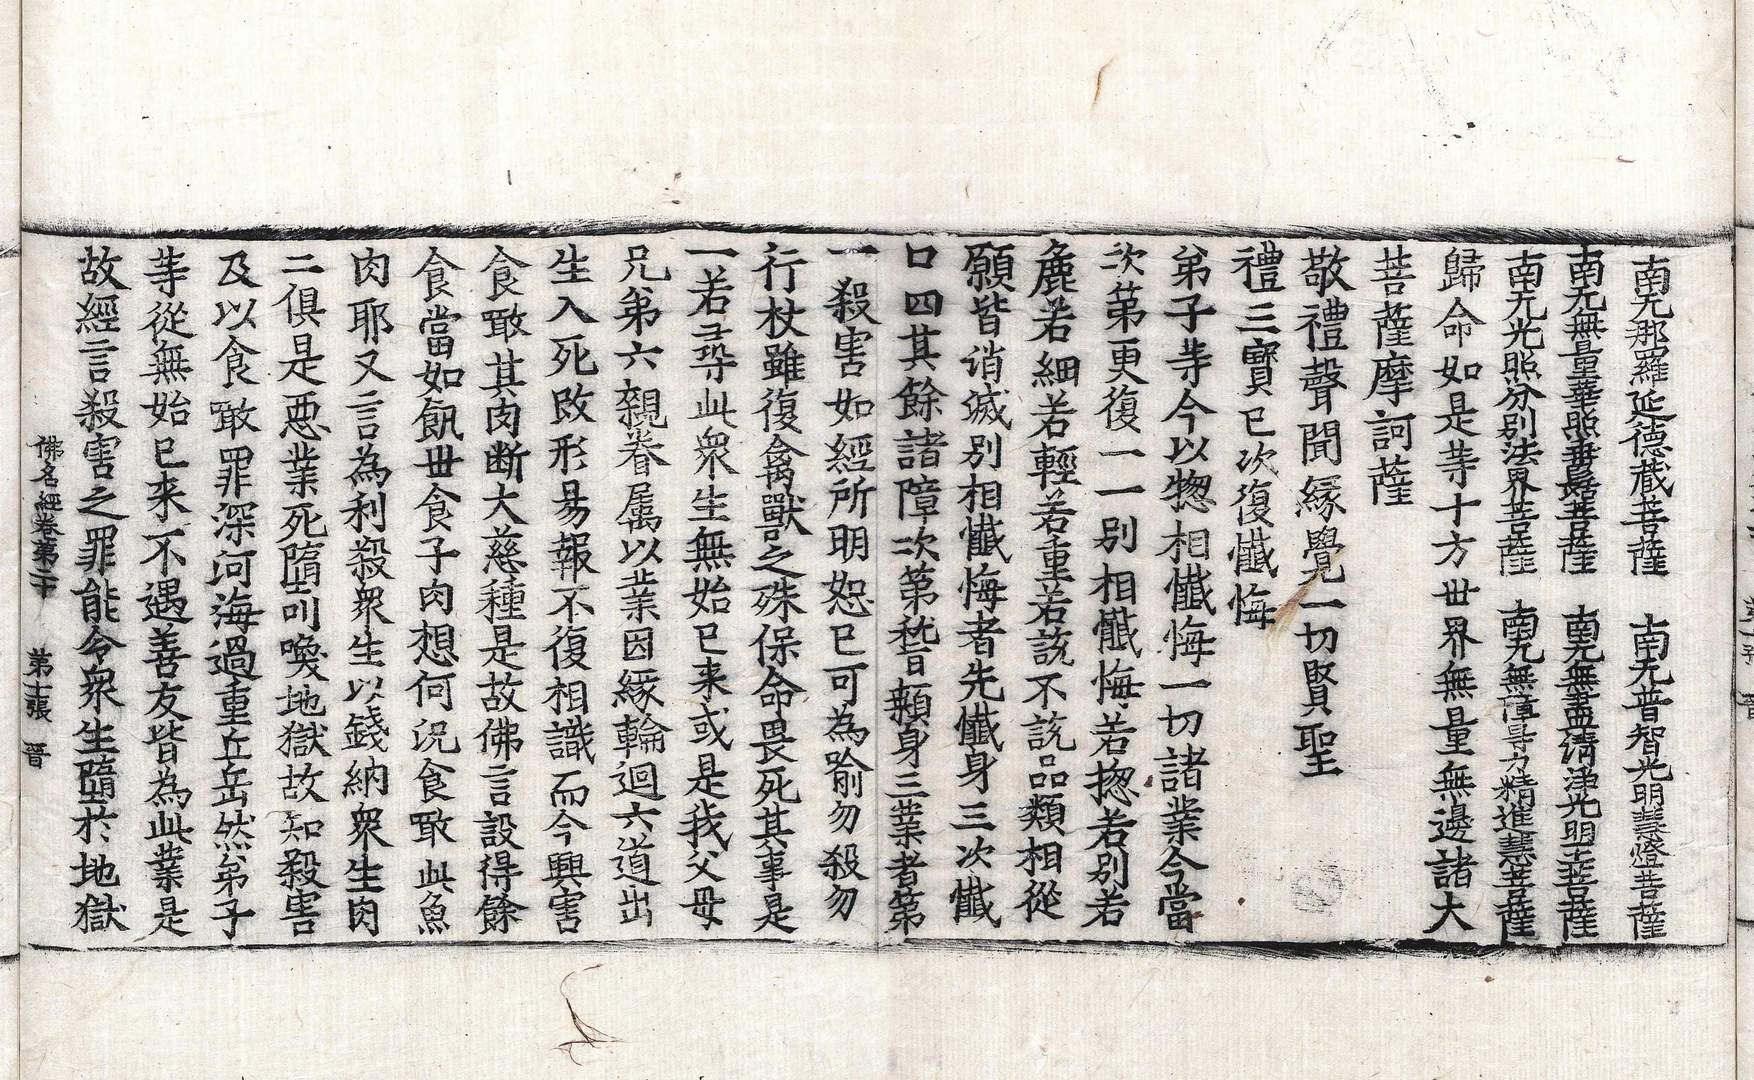 南无那羅延德藏菩薩　南无普智光明慧燈菩薩
南无無量華照無垢菩薩　南无無盖清淨光明士菩薩
南无光照分別法界菩薩　南无無障㝵力精進慧菩薩
歸命如是䓁十方世界無量無邊諸大
菩薩摩訶薩
敬禮聲聞縁覺一切賢聖
禮三寶已次復懺悔
弟子䓁今以惣相懺悔一切諸業今當
次第更復一一別相懺悔若揔若別若
麁若細若輕若重若說不說品類相從
願皆消滅別相懺悔者先懺身三次懺
口四其餘諸障次第稽顙身三業者第
一殺害如經所明恕已可為喻勿殺勿
行杖雖復禽獸之殊保命畏死其事是
一若尋此衆生無始已来或是我父母
兄弟六親眷属以業因縁輪迴六道出
生入死改形易報不復相識而今興害
食噉其肉断大慈種是故佛言設得餘
食當如飢世食子肉想何況食噉此魚
肉耶又言為利殺衆生以錢納衆生肉
二俱是惡業死墮叫喚地獄故知殺害
及以食噉罪深河海過重丘岳然弟子
䓁從無始已来不遇善友皆為此業是
故經言殺害之罪能令衆生墮於地獄
佛名經卷第二十　第十張　晉